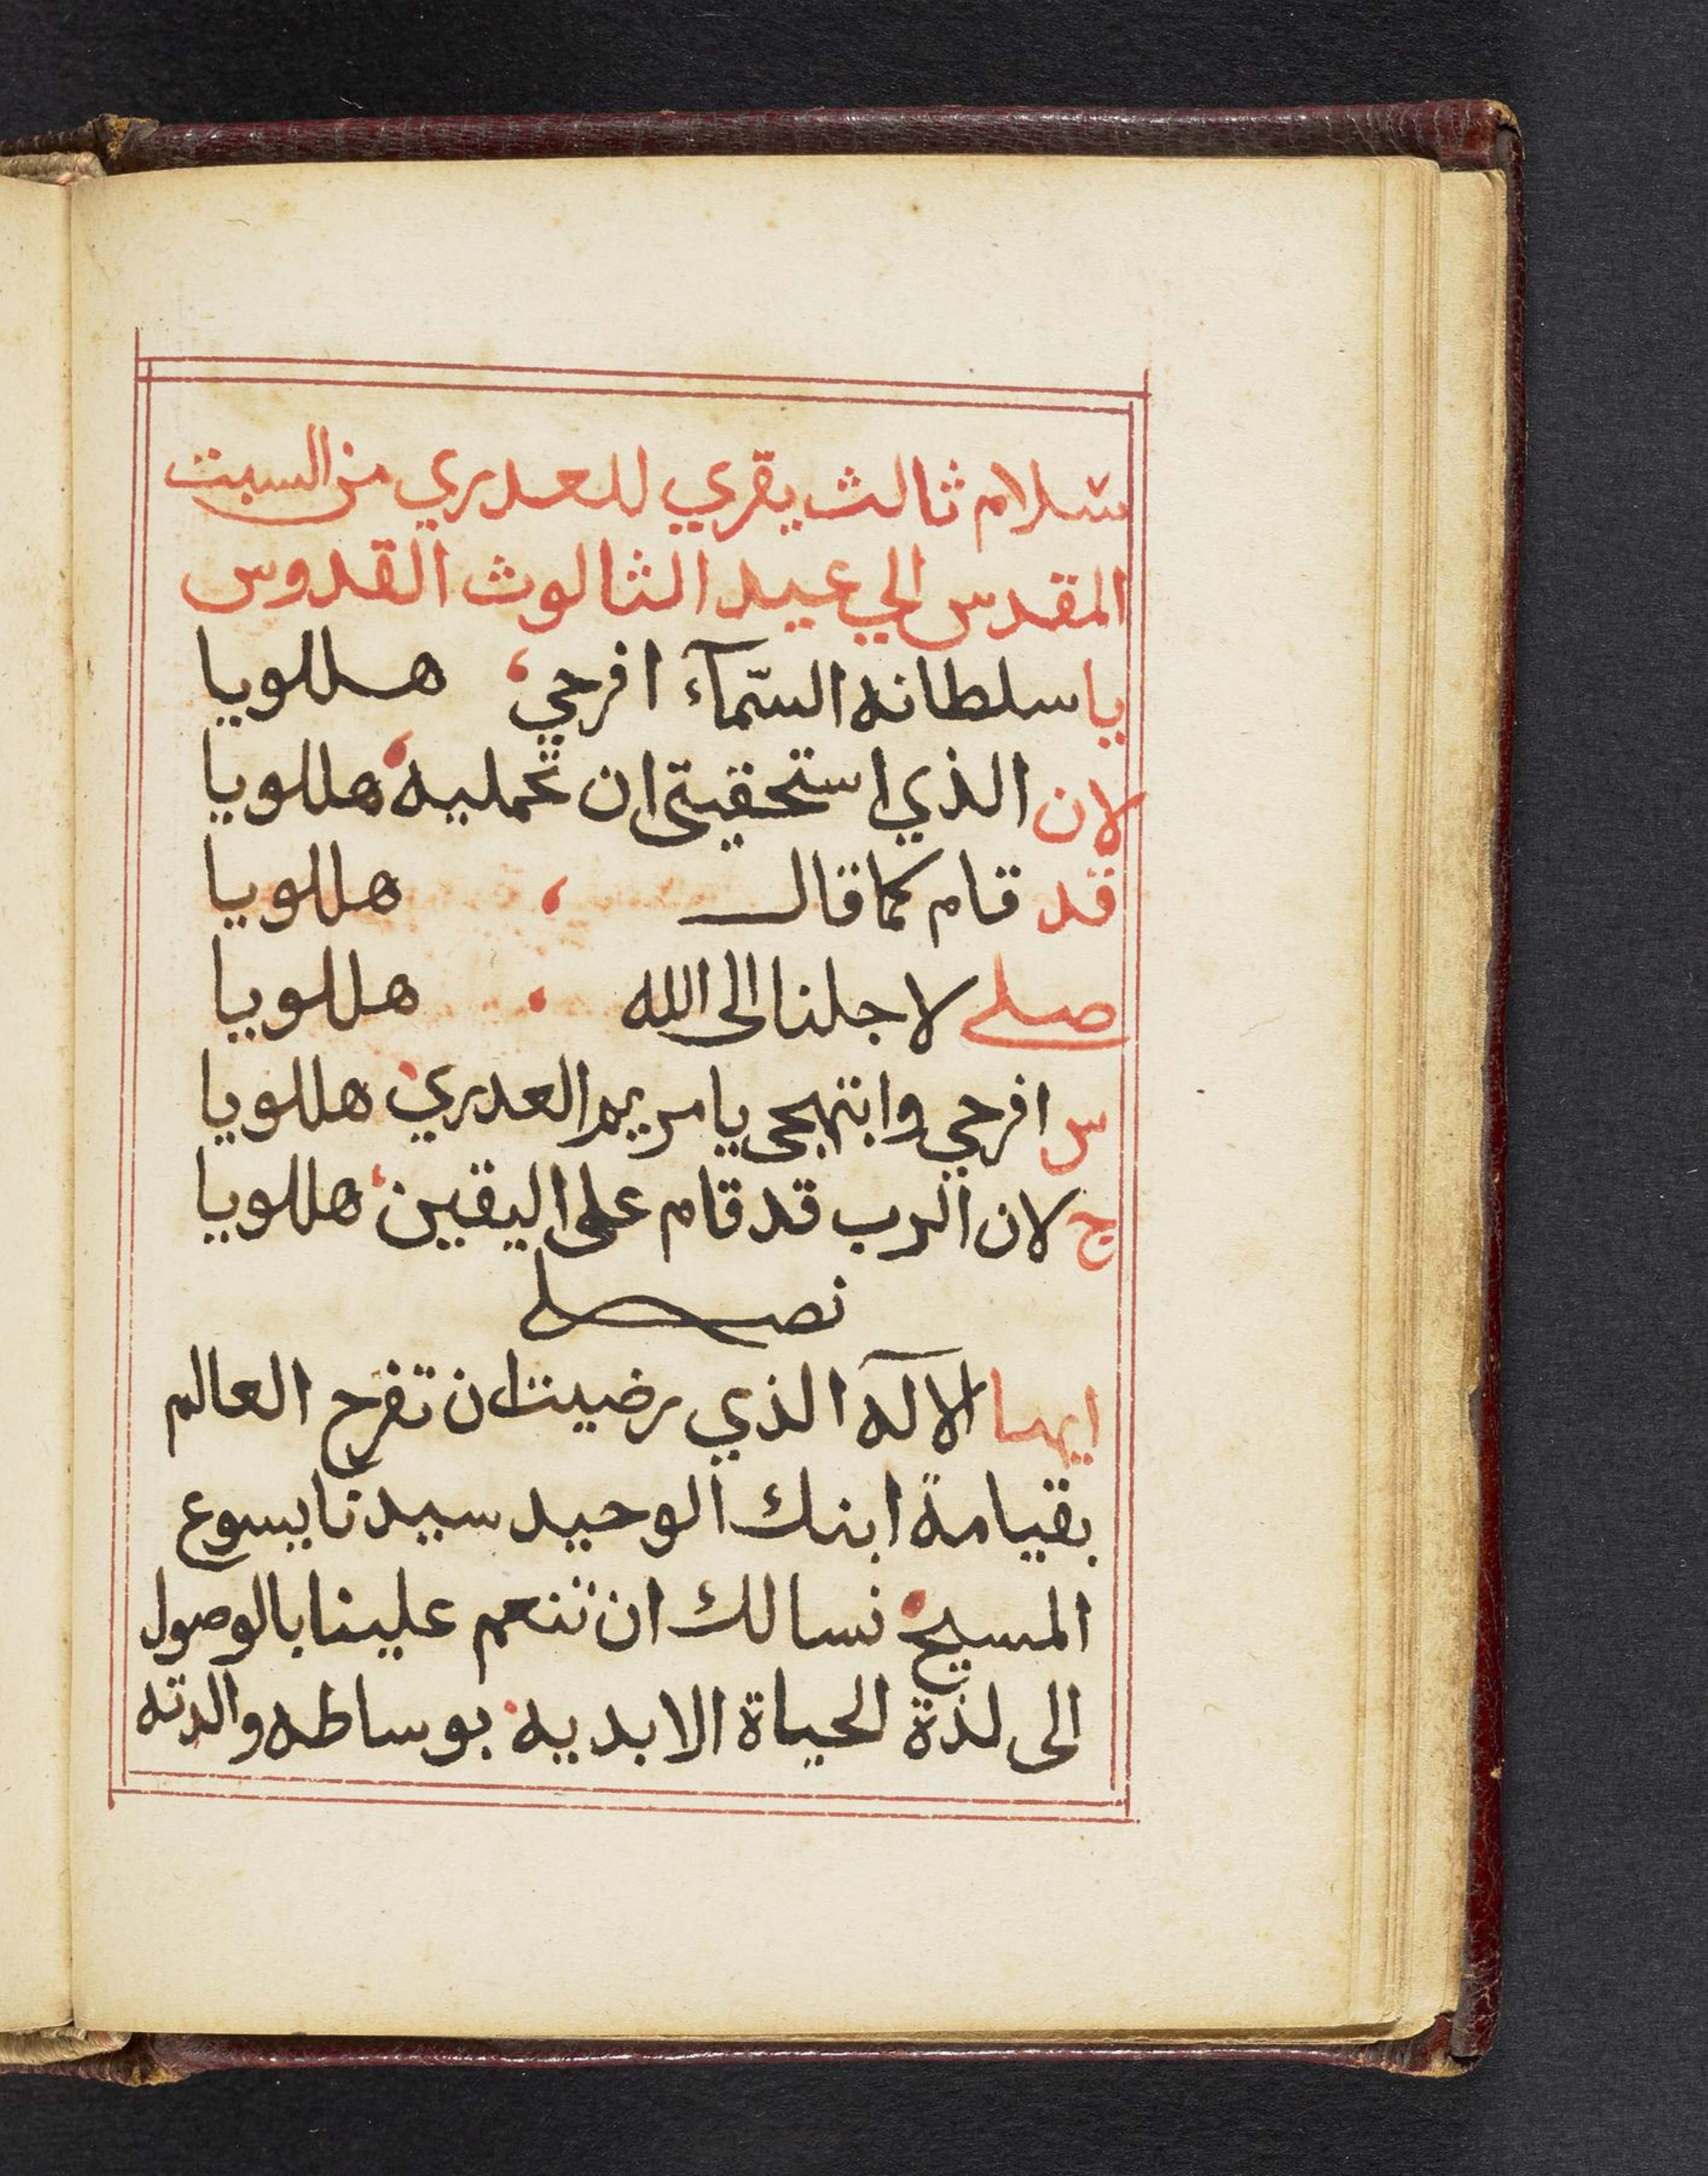 سلام ثالث يقري للعدري من السبت
المقدس الي عيد الثالوث القدوس
يا سلطانه السّمآء افرحي، هللويا
لان الذي استحقيتي ان تحمليه، هللويا
قد قام كما قال ، هللويا
صلي لاجلنا الى الله . هللويا
س افرحي وابتهجي يا مريم العدري، هللويا
ج لان الرب قد قام على اليقين، هللويا
نصلي
ايها الاله الذي رضيت ان تفرح العالم
بقيامة ابنك الوحيد سيدنا يسوع
المسيح. نسالك ان تنعم علينا بالوصول
الى لذة الحياة الابديه. بوساطه والدته